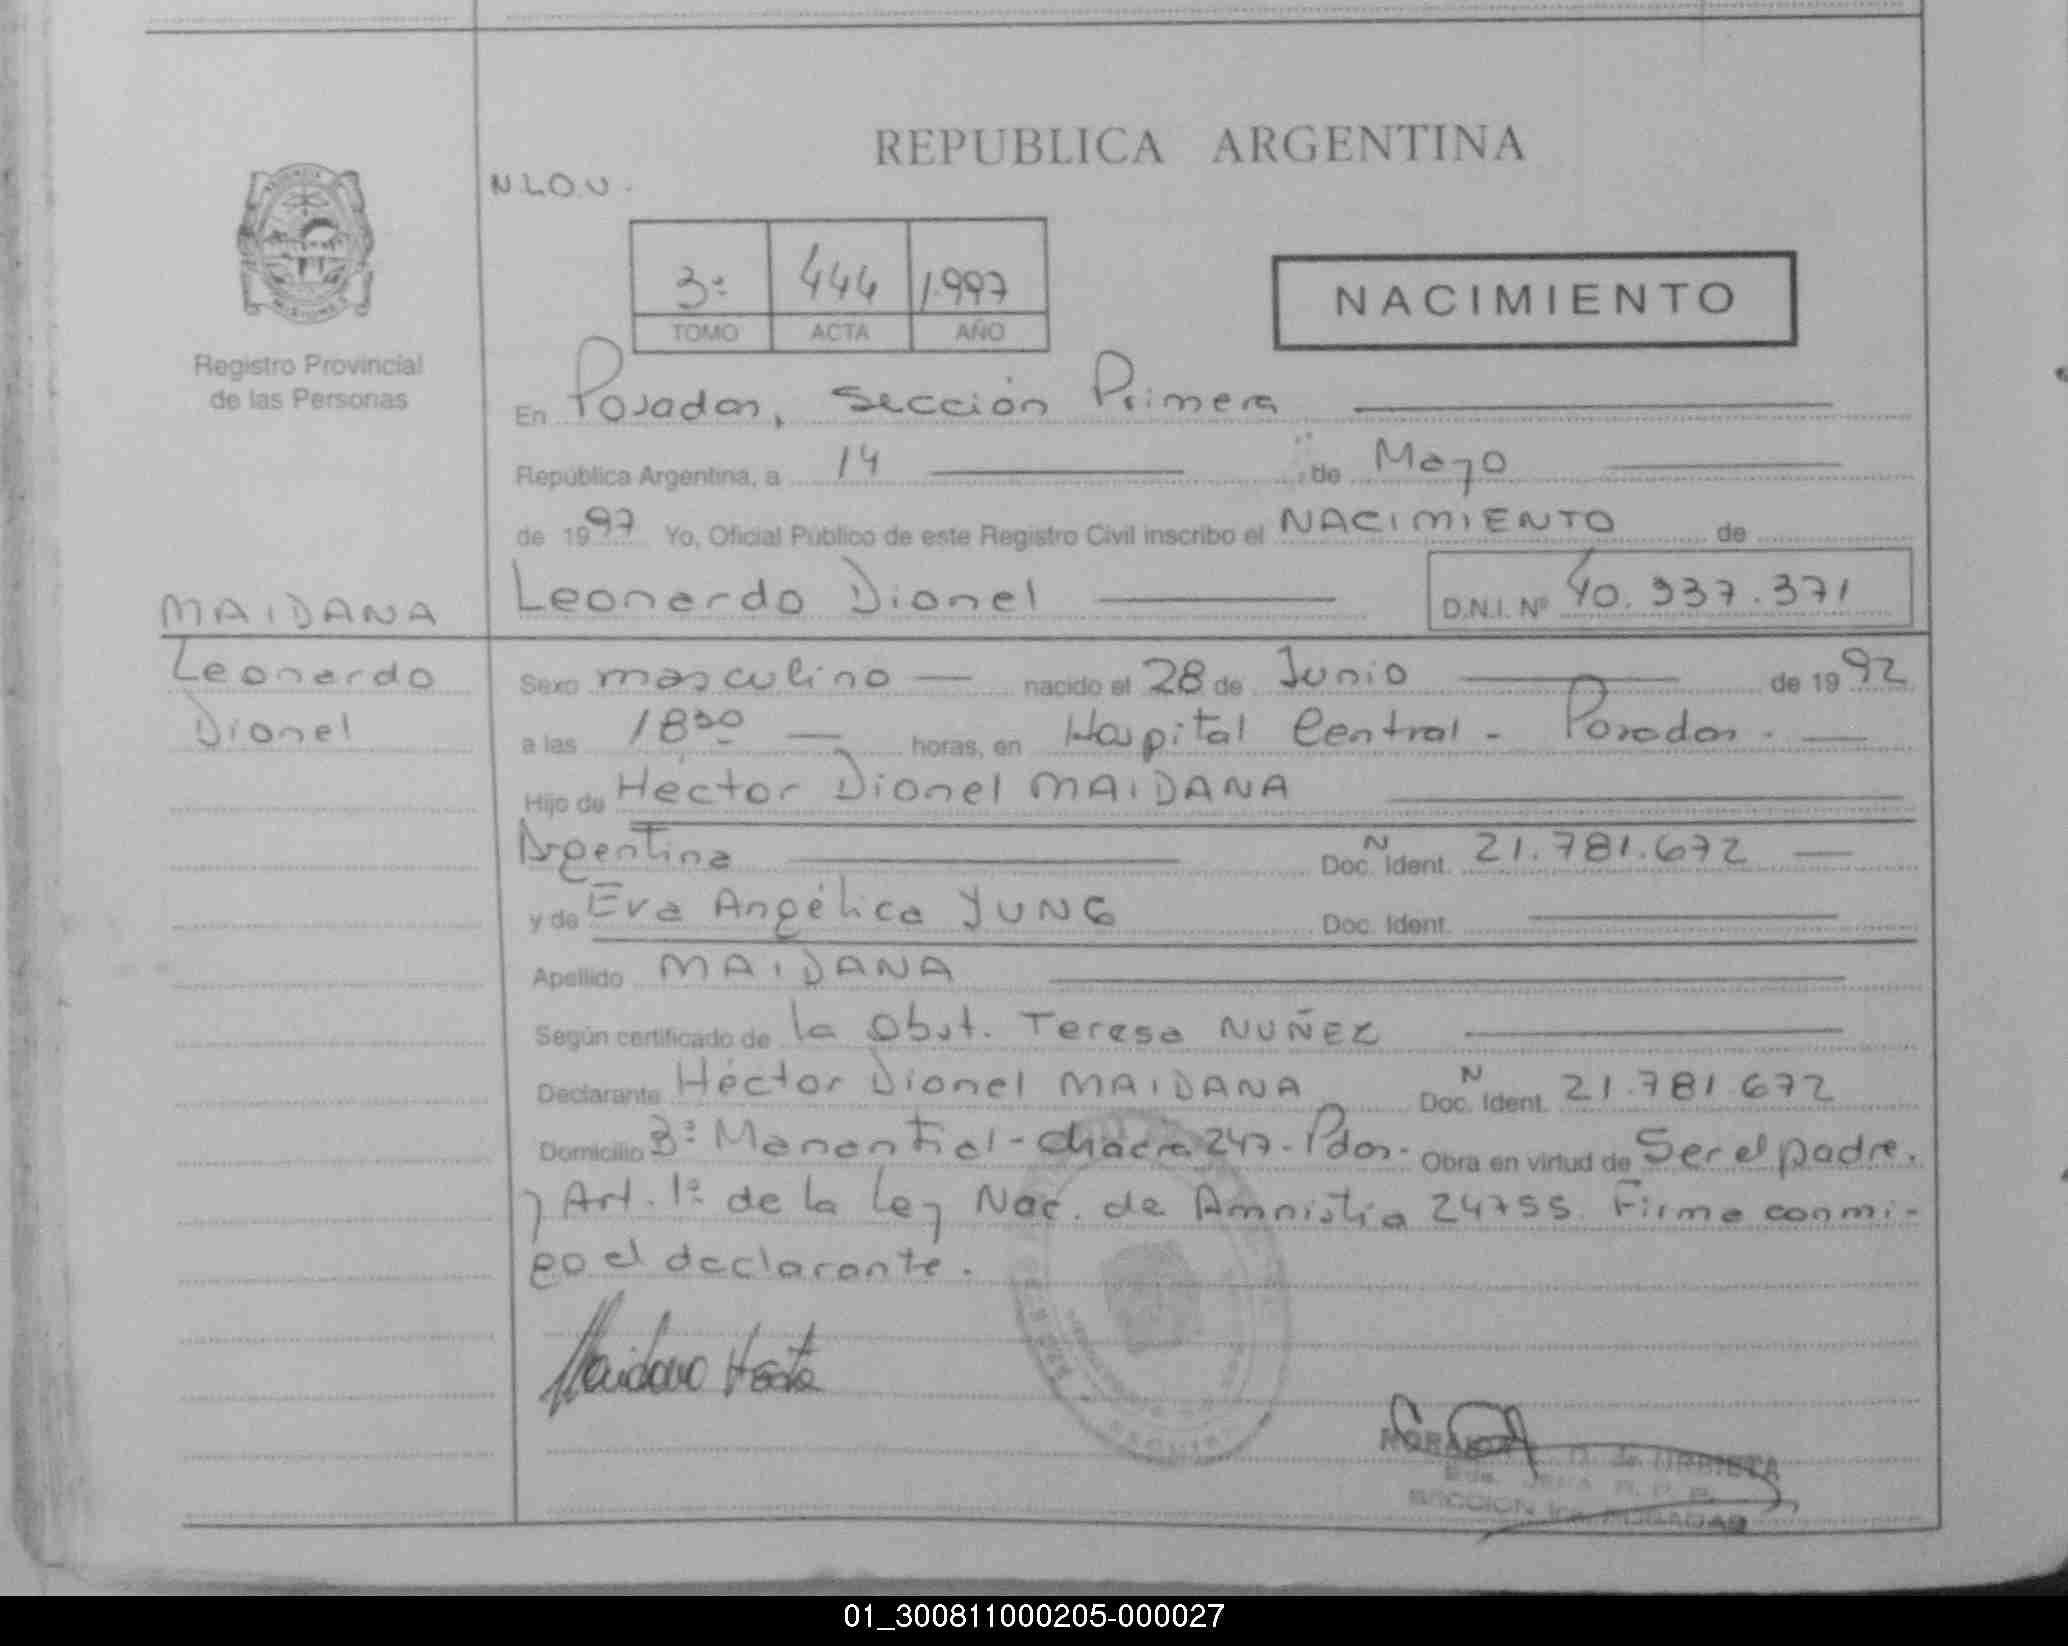 REPUBLICA ARGENTINA
N.L.O.U.
3ª 444 1.997
TOMO ACTA AÑO
NACIMIENTO
Registro Provincial
de las Personas
En Posadas, Sección Primera
República Argentina, a 14 de Mayo
de 1997 Yo, Oficial Público de este Registro Civil inscribo el NACIMIENTO de
Leonardo Dionel D.N.I. Nº 40.337.371
MAIDANA
Leonardo
Dionel
Sexo masculino nacido el 28 de Junio de 1992
a las 18,30 horas, en Hospital Central - Posadas.
Hijo de Hector Dionel MAIDANA
Argentina Doc. N Ident. 21.781.672
y de Eva Angélica YUNG Doc. Ident.
Apellido MAIDANA
Según certificado de la Obst. Teresa NUÑEZ
Declarante Héctor Dionel MAIDANA Doc. N Ident. 21.781.672
Domicilio Bº Manantial - chacra 247 - Pdas. Obra en virtud de Ser el padre.
y Art. 1º de la Ley Nac. de Amnistia 24755. Firma conmi-
go el declarante.
Maidana Hector
de URBIETA
SECCION 1ra. POSADAS
01_300811000205-000027